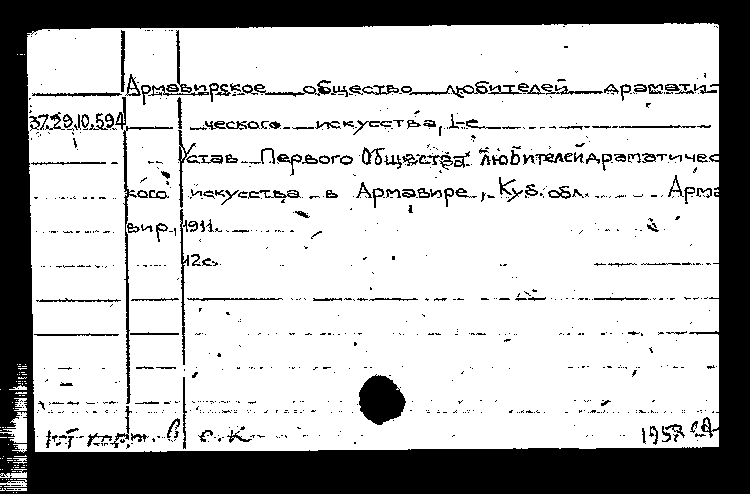 Армавирское общество любителей драмати-
37.29.10.594 ческого искусства, 1-е
Устав Первого Общества любителей драматичес
кого искусства в Армавире, Куб. обл. Арма
вир, 1911.
12с.
1958